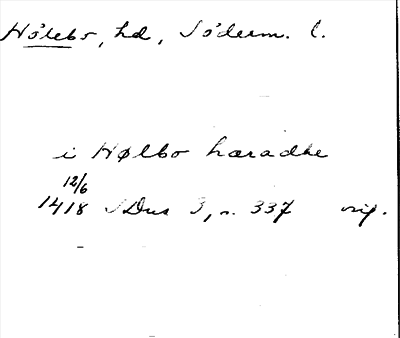 Hölebo, hd, Söderm. l.
i Hølbo hæradhe
12/6
1418 SDns 3, s. 337 orig.